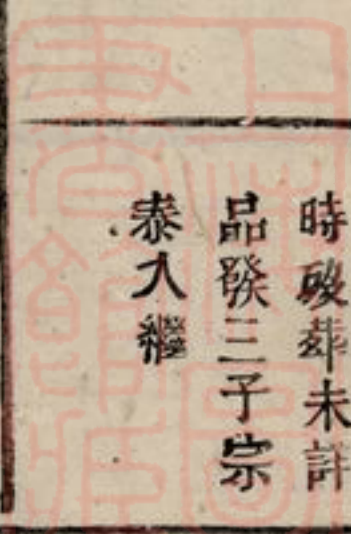 時殁葬未詳
品發三子宗
泰入繼